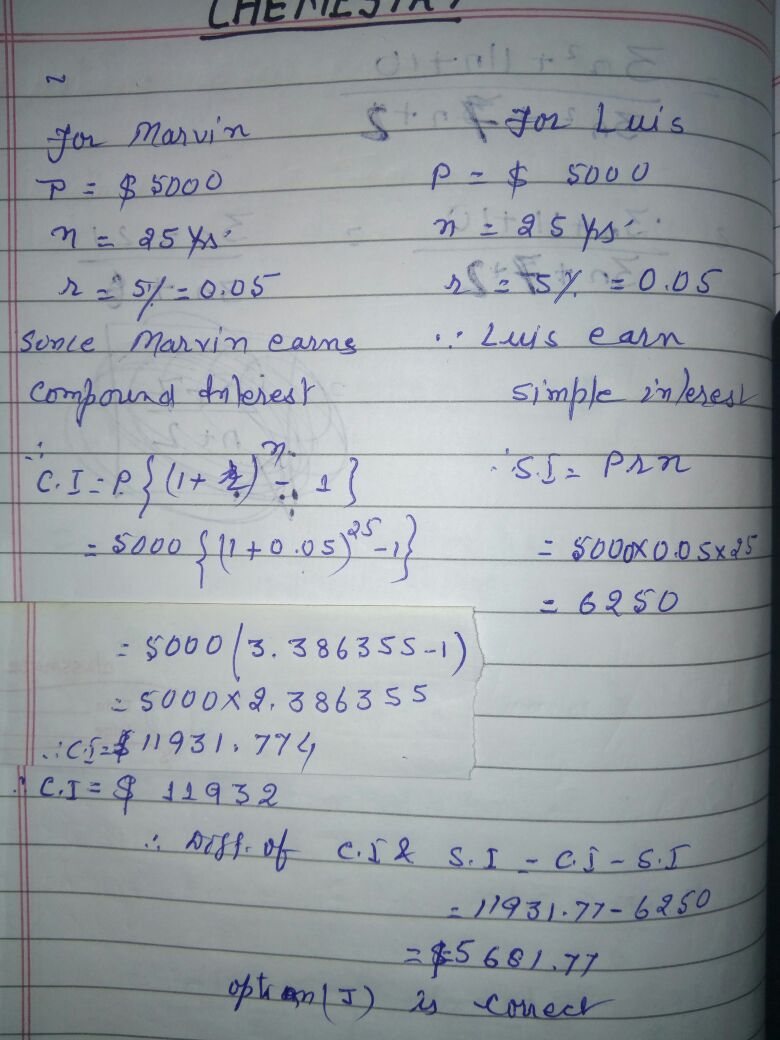 CHEMESTRY
~
For Marvin
P = $ 5000
n = 25 yrs.
r = 5% = 0.05
Sence Marvin earns
compound Interest
∴ C.I = P { (1 + r)ⁿ - 1 }
= 5000 { (1 + 0.05)²⁵ - 1 }
= 5000 (3.386355 - 1)
= 5000 × 2.386355
∴ C.I = $ 11931.774
∴ C.I = $ 11932
For Luis
P = $ 5000
n = 25 yrs
r = 5% = 0.05
∵ Luis earn
simple interest
∴ S.I = Prn
= 5000×0.05×25
= 6250
∴ Diff. of C.I & S.I = C.I - S.I
= 11931.77 - 6250
= $5681.77
option (J) is correct